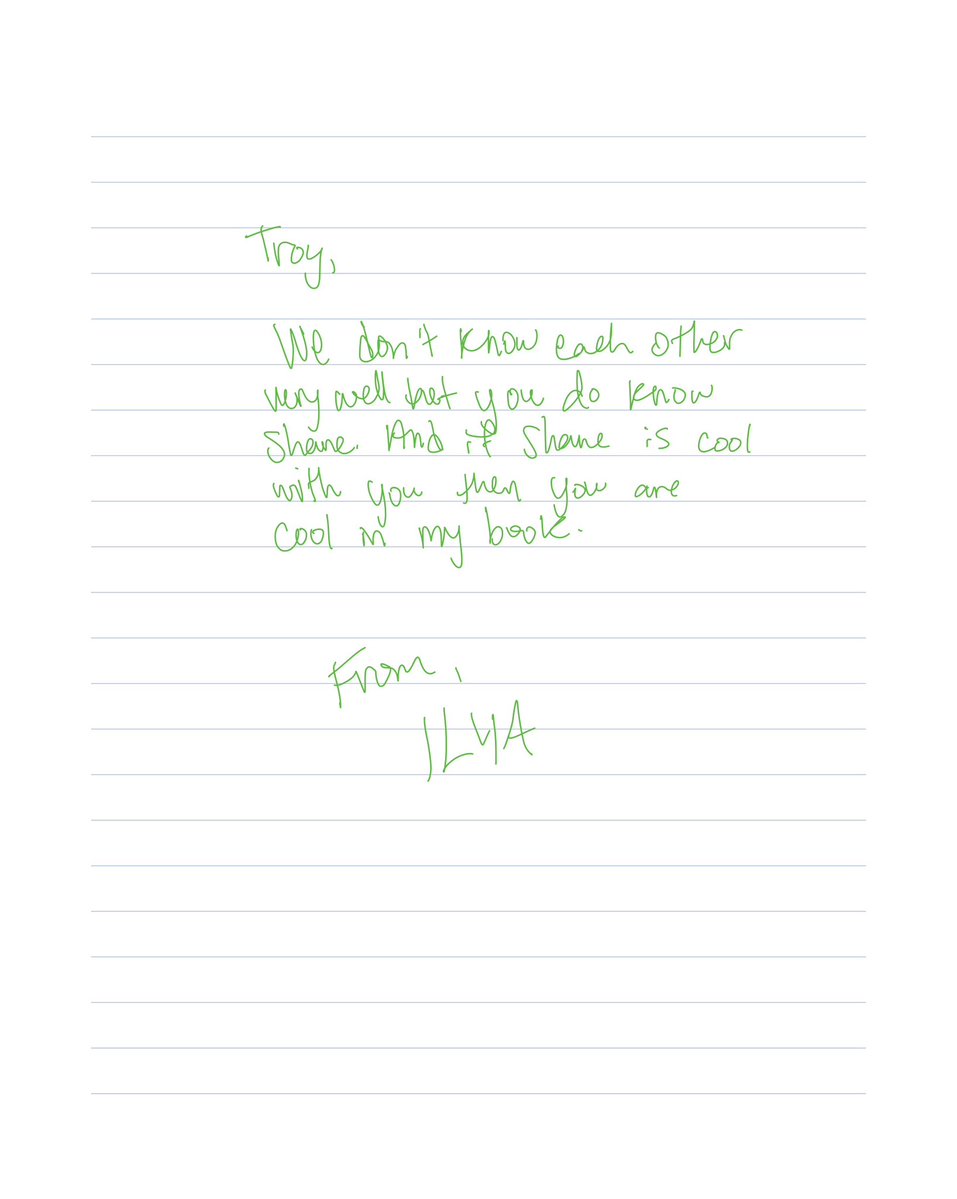 Troy,
We don't know each other
very well but you do know
Shane. And if Shane is cool
with you then you are
cool in my book.
From,
ILYA